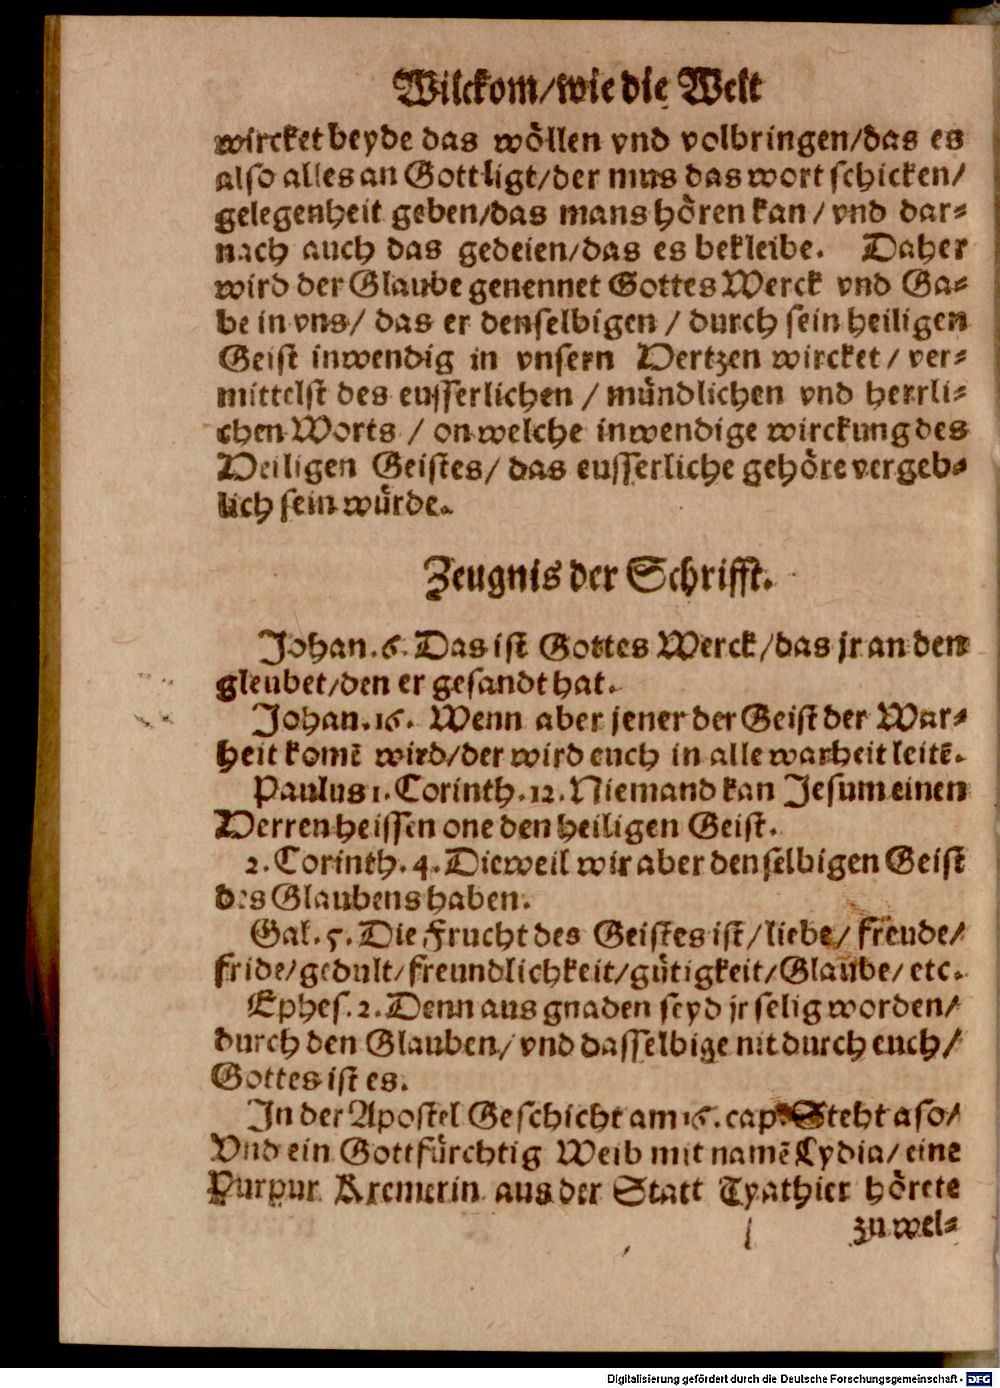 Wilckom/wie die Welt
wircket beyde das wöllen vnd volbringen/das es
also alles an Gott ligt/der mus das wort schicken/
gelegenheit geben/das mans hören kan/vnd dar-
nach auch das gedeien/das es bekleibe. Daher
wird der Glaube genennet Gottes Werck vnd Ga-
be in vns/ das er denselbigen / durch sein heiligen
Geist inwendig in vnsern Hertzen wircket / ver-
mittelst des eusserlichen / mündlichen vnd herrli-
chen Worts / on welche inwendige wirckung des
Heiligen Geistes/ das eusserliche gehöre vergeb-
lich sein würde.
Zeugnis der Schrifft.
Johan.6. Das ist Gottes Werck/das jr an den
gleubet/den er gesandt hat.
Johan.16. Wenn aber jener der Geist der War-
heit komē wird/der wird euch in alle warheit leitē.
Paulus 1. Corinth.12. Niemand kan Jesum einen
Herren heissen one den heiligen Geist.
2. Corinth. 4. Dieweil wir aber denselbigen Geist
des Glaubens haben.
Gal. 5. Die Frucht des Geistes ist/liebe/ freude/
fride/gedult/freundlichkeit/gütigkeit/Glaube/ etc.
Ephes. 2. Denn aus gnaden seyd jr selig worden/
durch den Glauben/ vnd dasselbige nit durch euch/
Gottes ist es.
In der Apostel Geschicht am 16. cap. Steht aso/
Vnd ein Gottfürchtig Weib mit namē Lydia/ eine
Purpur Kremerin aus der Statt Tyathier hörete
zu wel-
Digitalisierung gefördert durch die Deutsche Forschungsgemeinschaft - DFG